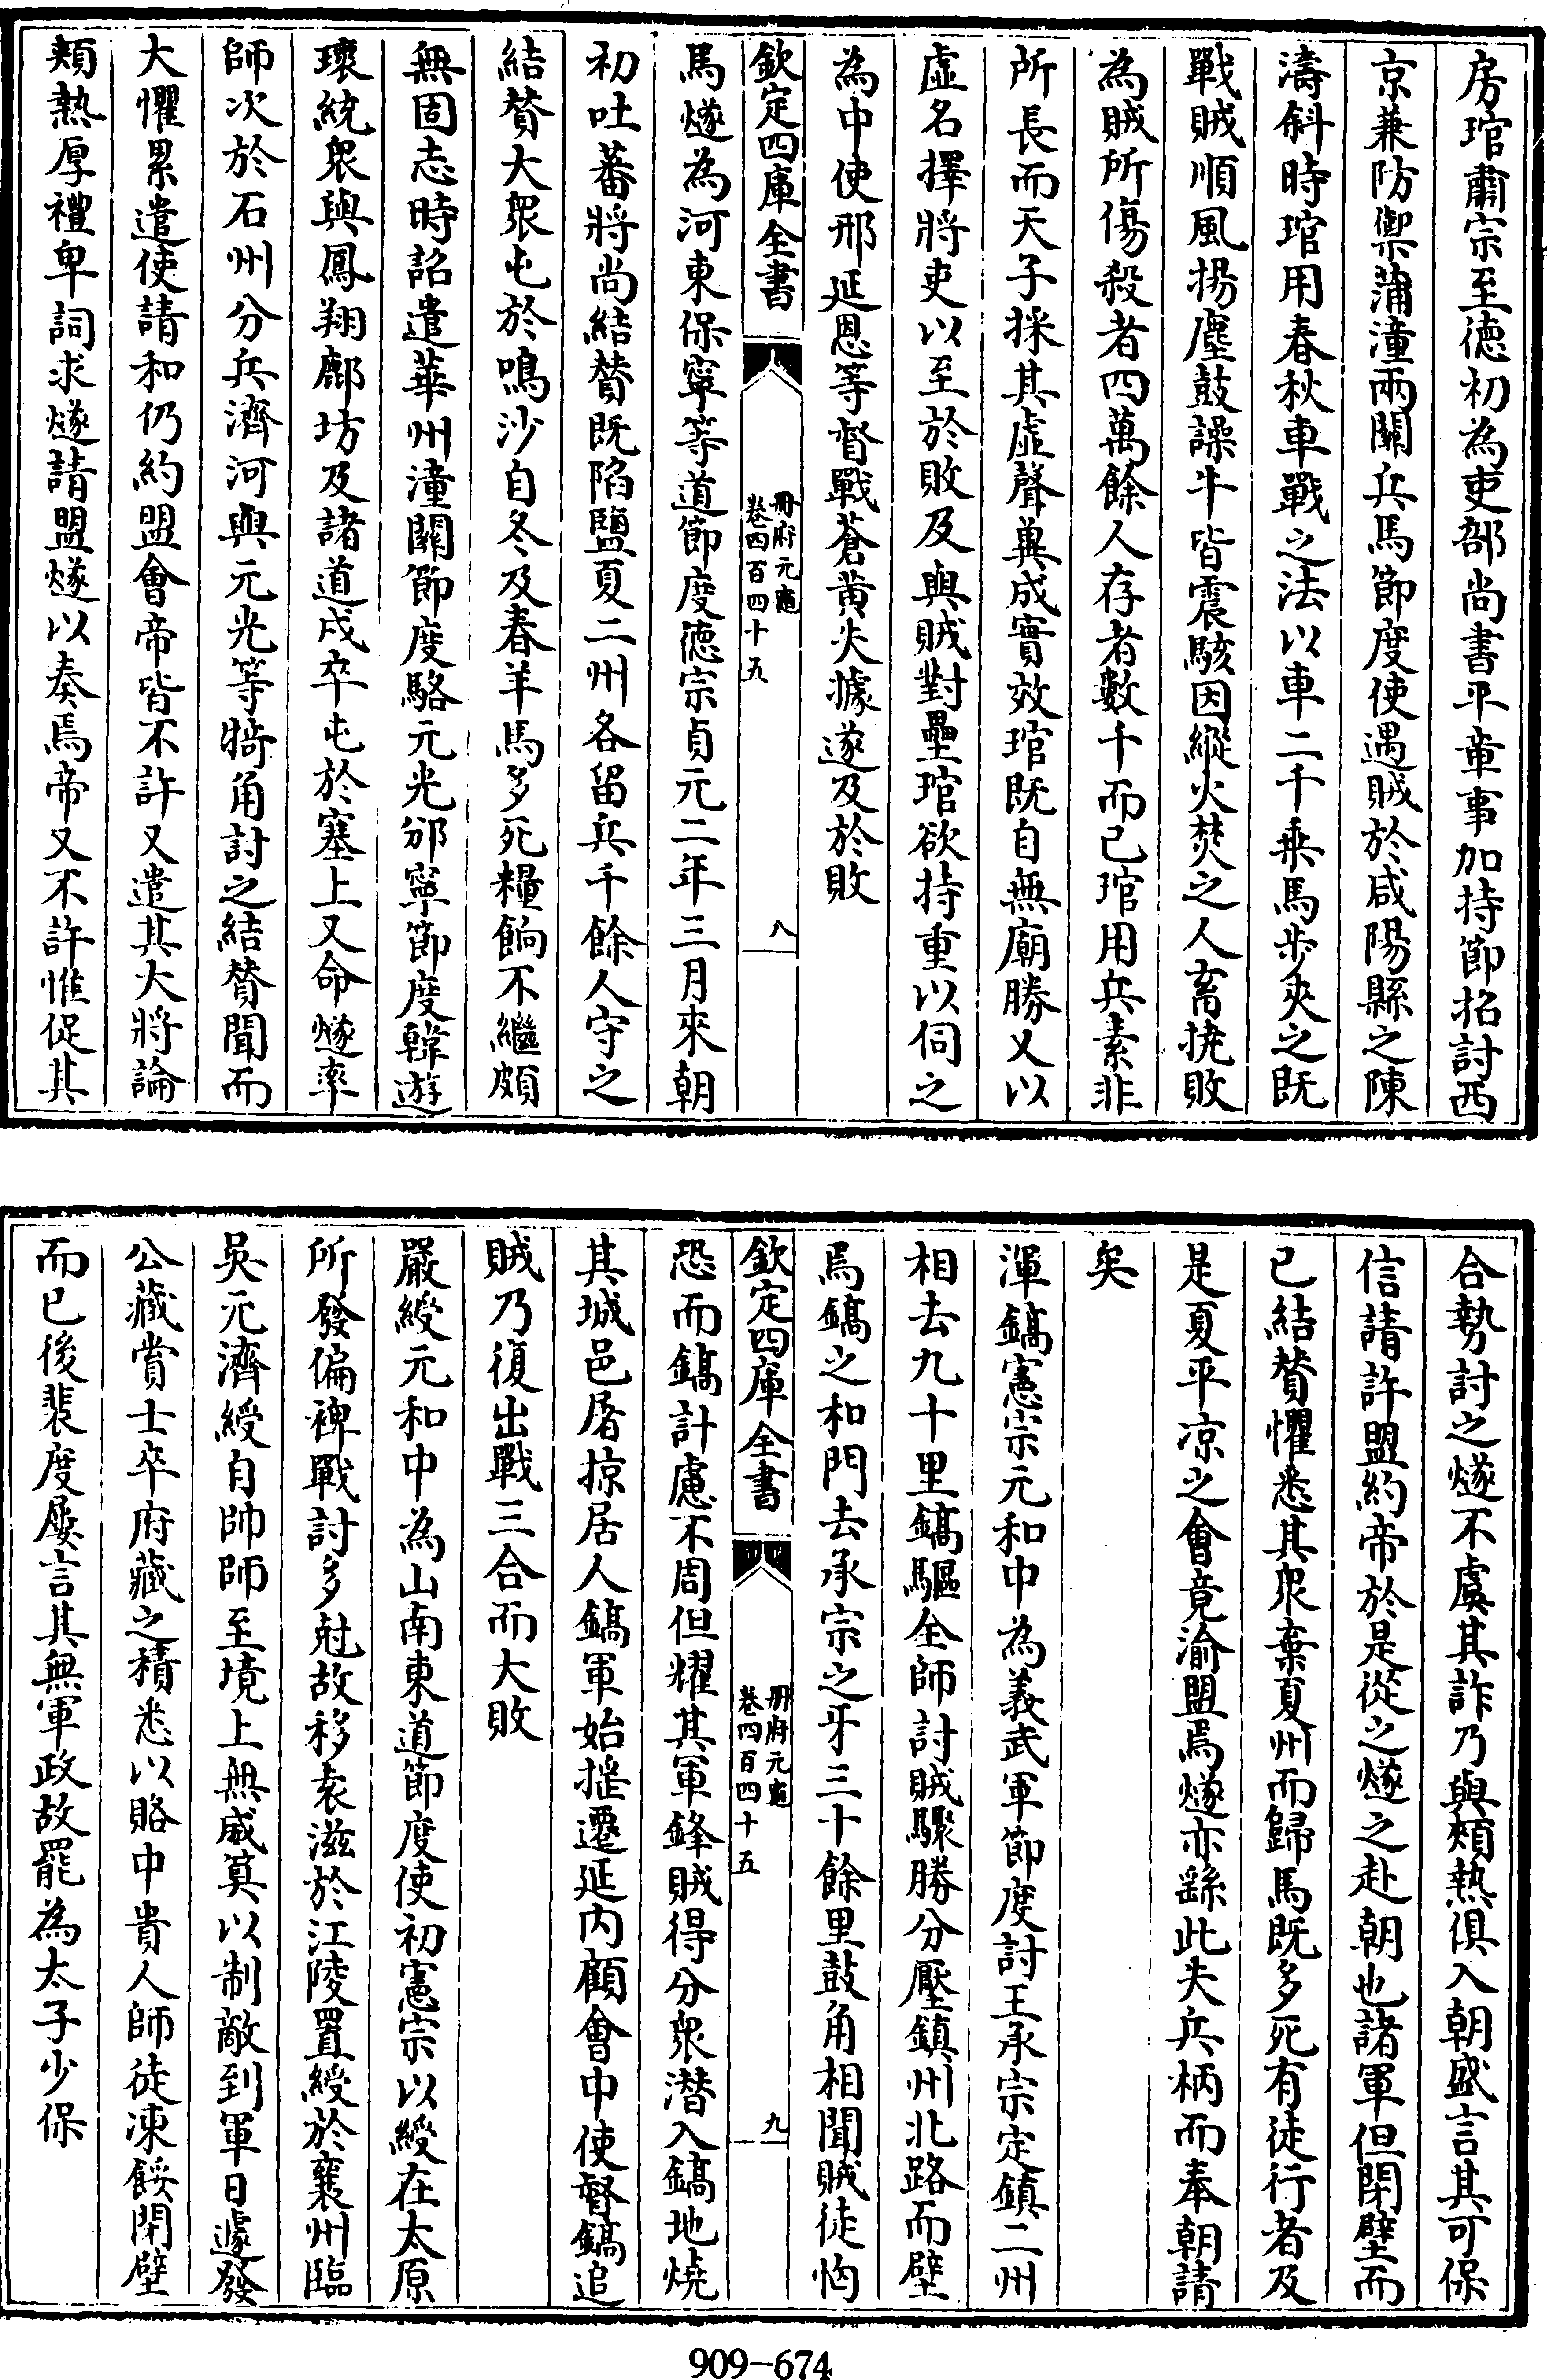 房琯肅宗至徳初為吏部尚書平章事加持節招討西
京兼防禦蒲潼兩關兵馬節度使遇賊於咸陽縣之陳
濤斜時琯用春秋車戰之法以車二千乘馬步夾之既
戰賊順風揚塵鼓譟牛皆震駭因縱火焚之人畜撓敗
為賊所傷殺者四萬餘人存者數千而已琯用兵素非
所長而天子採其虛聲兾成實效琯既自無廟勝又以
虛名擇將吏以至於敗及與賊對壘琯欲持重以伺之
為中使邢延恩等督戰蒼黄失據遂及於敗
欽定四庫全書
冊府元龜
卷四百四十五
八
馬燧為河東保寧等道節度徳宗貞元二年三月來朝
初吐蕃將尚結賛既陷鹽夏二州各留兵千餘人守之
結賛大衆屯於鳴沙自冬及春羊馬多死糧餉不繼頗
無固志時詔遣華州潼關節度駱元光邠寧節度韓遊
瓌統衆與鳳翔鄜坊及諸道戍卒屯於塞上又命燧率
師次於石州分兵濟河與元光等犄角討之結賛聞而
大懼累遣使請和仍約盟會帝皆不許又遣其大將論
頰熱厚禮卑詞求燧請盟燧以奏焉帝又不許惟促其
合勢討之燧不虞其詐乃與頰熱俱入朝盛言其可保
信請許盟約帝於是從之燧之赴朝也諸軍但閉壁而
已結賛懼悉其衆棄夏州而歸馬既多死有徒行者及
是夏平凉之會竟渝盟焉燧亦繇此失兵柄而奉朝請
矣
渾鎬憲宗元和中為義武軍節度討王承宗定鎮二州
相去九十里鎬驅全師討賊驟勝分壓鎮州北路而壁
焉鎬之和門去承宗之牙三十餘里鼓角相聞賊徒恟
欽定四庫全書
冊府元龜
卷四百四十五
九
恐而鎬計慮不周但耀其軍鋒賊得分衆潛入鎬地燒
其城邑屠掠居人鎬軍始揺遷延内顧會中使督鎬追
賊乃復出戰三合而大敗
嚴綬元和中為山南東道節度使初憲宗以綬在太原
所發偏裨戰討多尅故移袁滋於江陵置綬於襄州臨
吳元濟綬自帥師至境上無威算以制敵到軍日遽發
公藏賞士卒府藏之積悉以賂中貴人師徒凍餒閉壁
而已後裴度屢言其無軍政故罷為太子少保
909-674